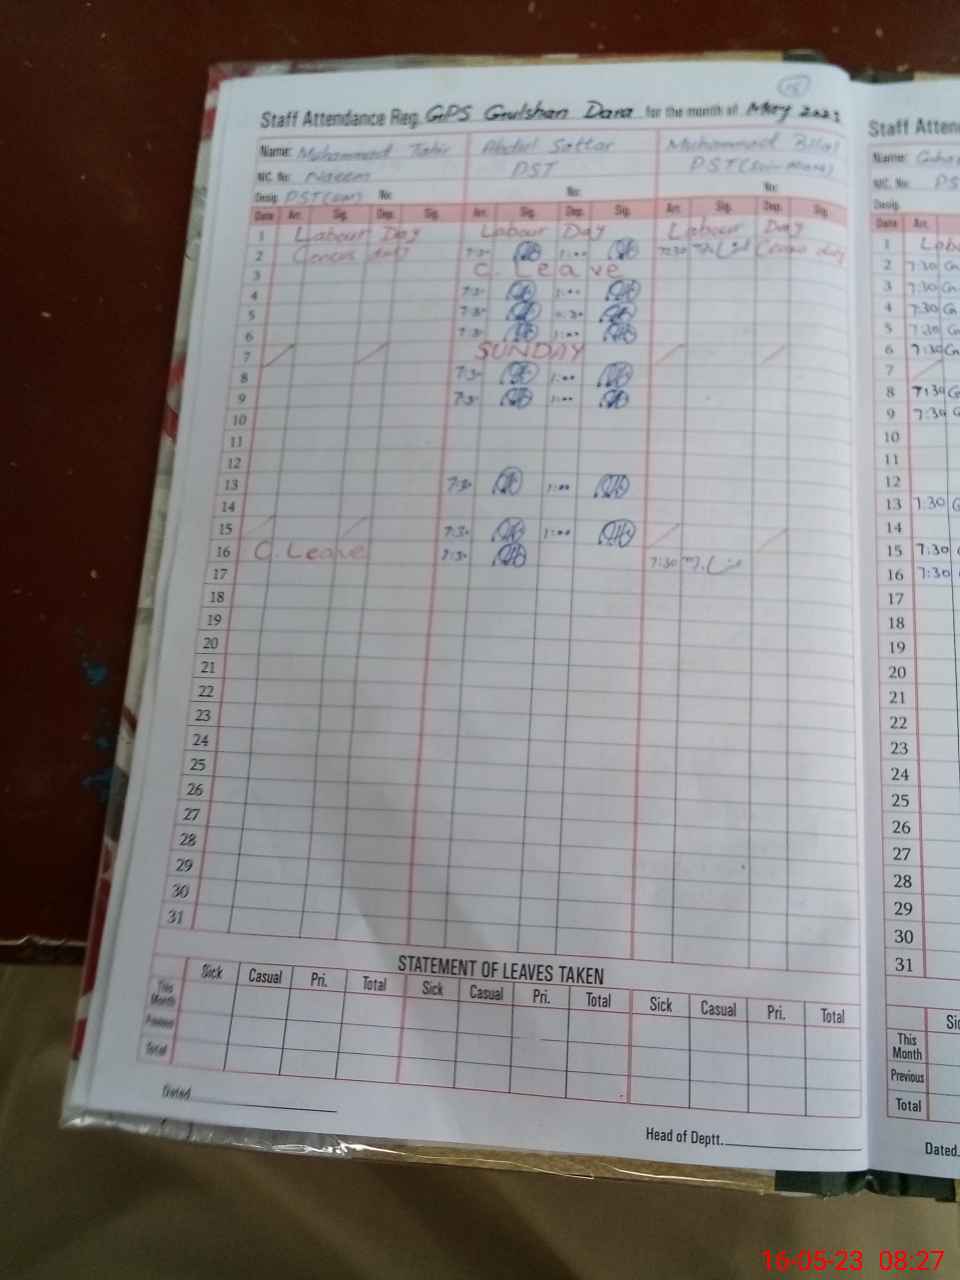 18
Staff Attendance Reg. GPS Gulshan Dara for the month of May 2023
Name: Muhammad Tahir Abdul Sattar Muhammad Bilal
NIC. No: Naeem PST PST
Desig. PST No: No: No:
Date Arr. Sig. Dep. Sig. Arr. Sig. Dep. Sig. Arr. Sig. Dep. Sig.
1 Labour Day Labour Day Labour Day
2 Census duty 7:30 1:00 7:30 Census duty
3 C. Leave
4 7:30 1:00
5 7:30 :30
6 7:30 1:00
7 SUNDAY
8 7:30 1:00
9 7:30 1:00
10
11
12
13 7:30 1:00
14
15 7:30 1:00
16 C. Leave 7:30 7:30
17
18
19
20
21
22
23
24
25
26
27
28
29
30
31
STATEMENT OF LEAVES TAKEN
Sick Casual Pri. Total Sick Casual Pri. Total Sick Casual Pri. Total
This Month
Previous
Total
Dated
Head of Deptt.
Staff Atten
Name:
NIC. No: PS
Desig.
Date Arr.
1 Lab
2 7:30
3 7:30
4 7:30
5 7:30
6 7:30
7
8 7:30
9 7:30
10
11
12
13 7:30
14
15 7:30
16 7:30
17
18
19
20
21
22
23
24
25
26
27
28
29
30
31
This Month
Previous
Total
Dated.
16-05-23 08:27